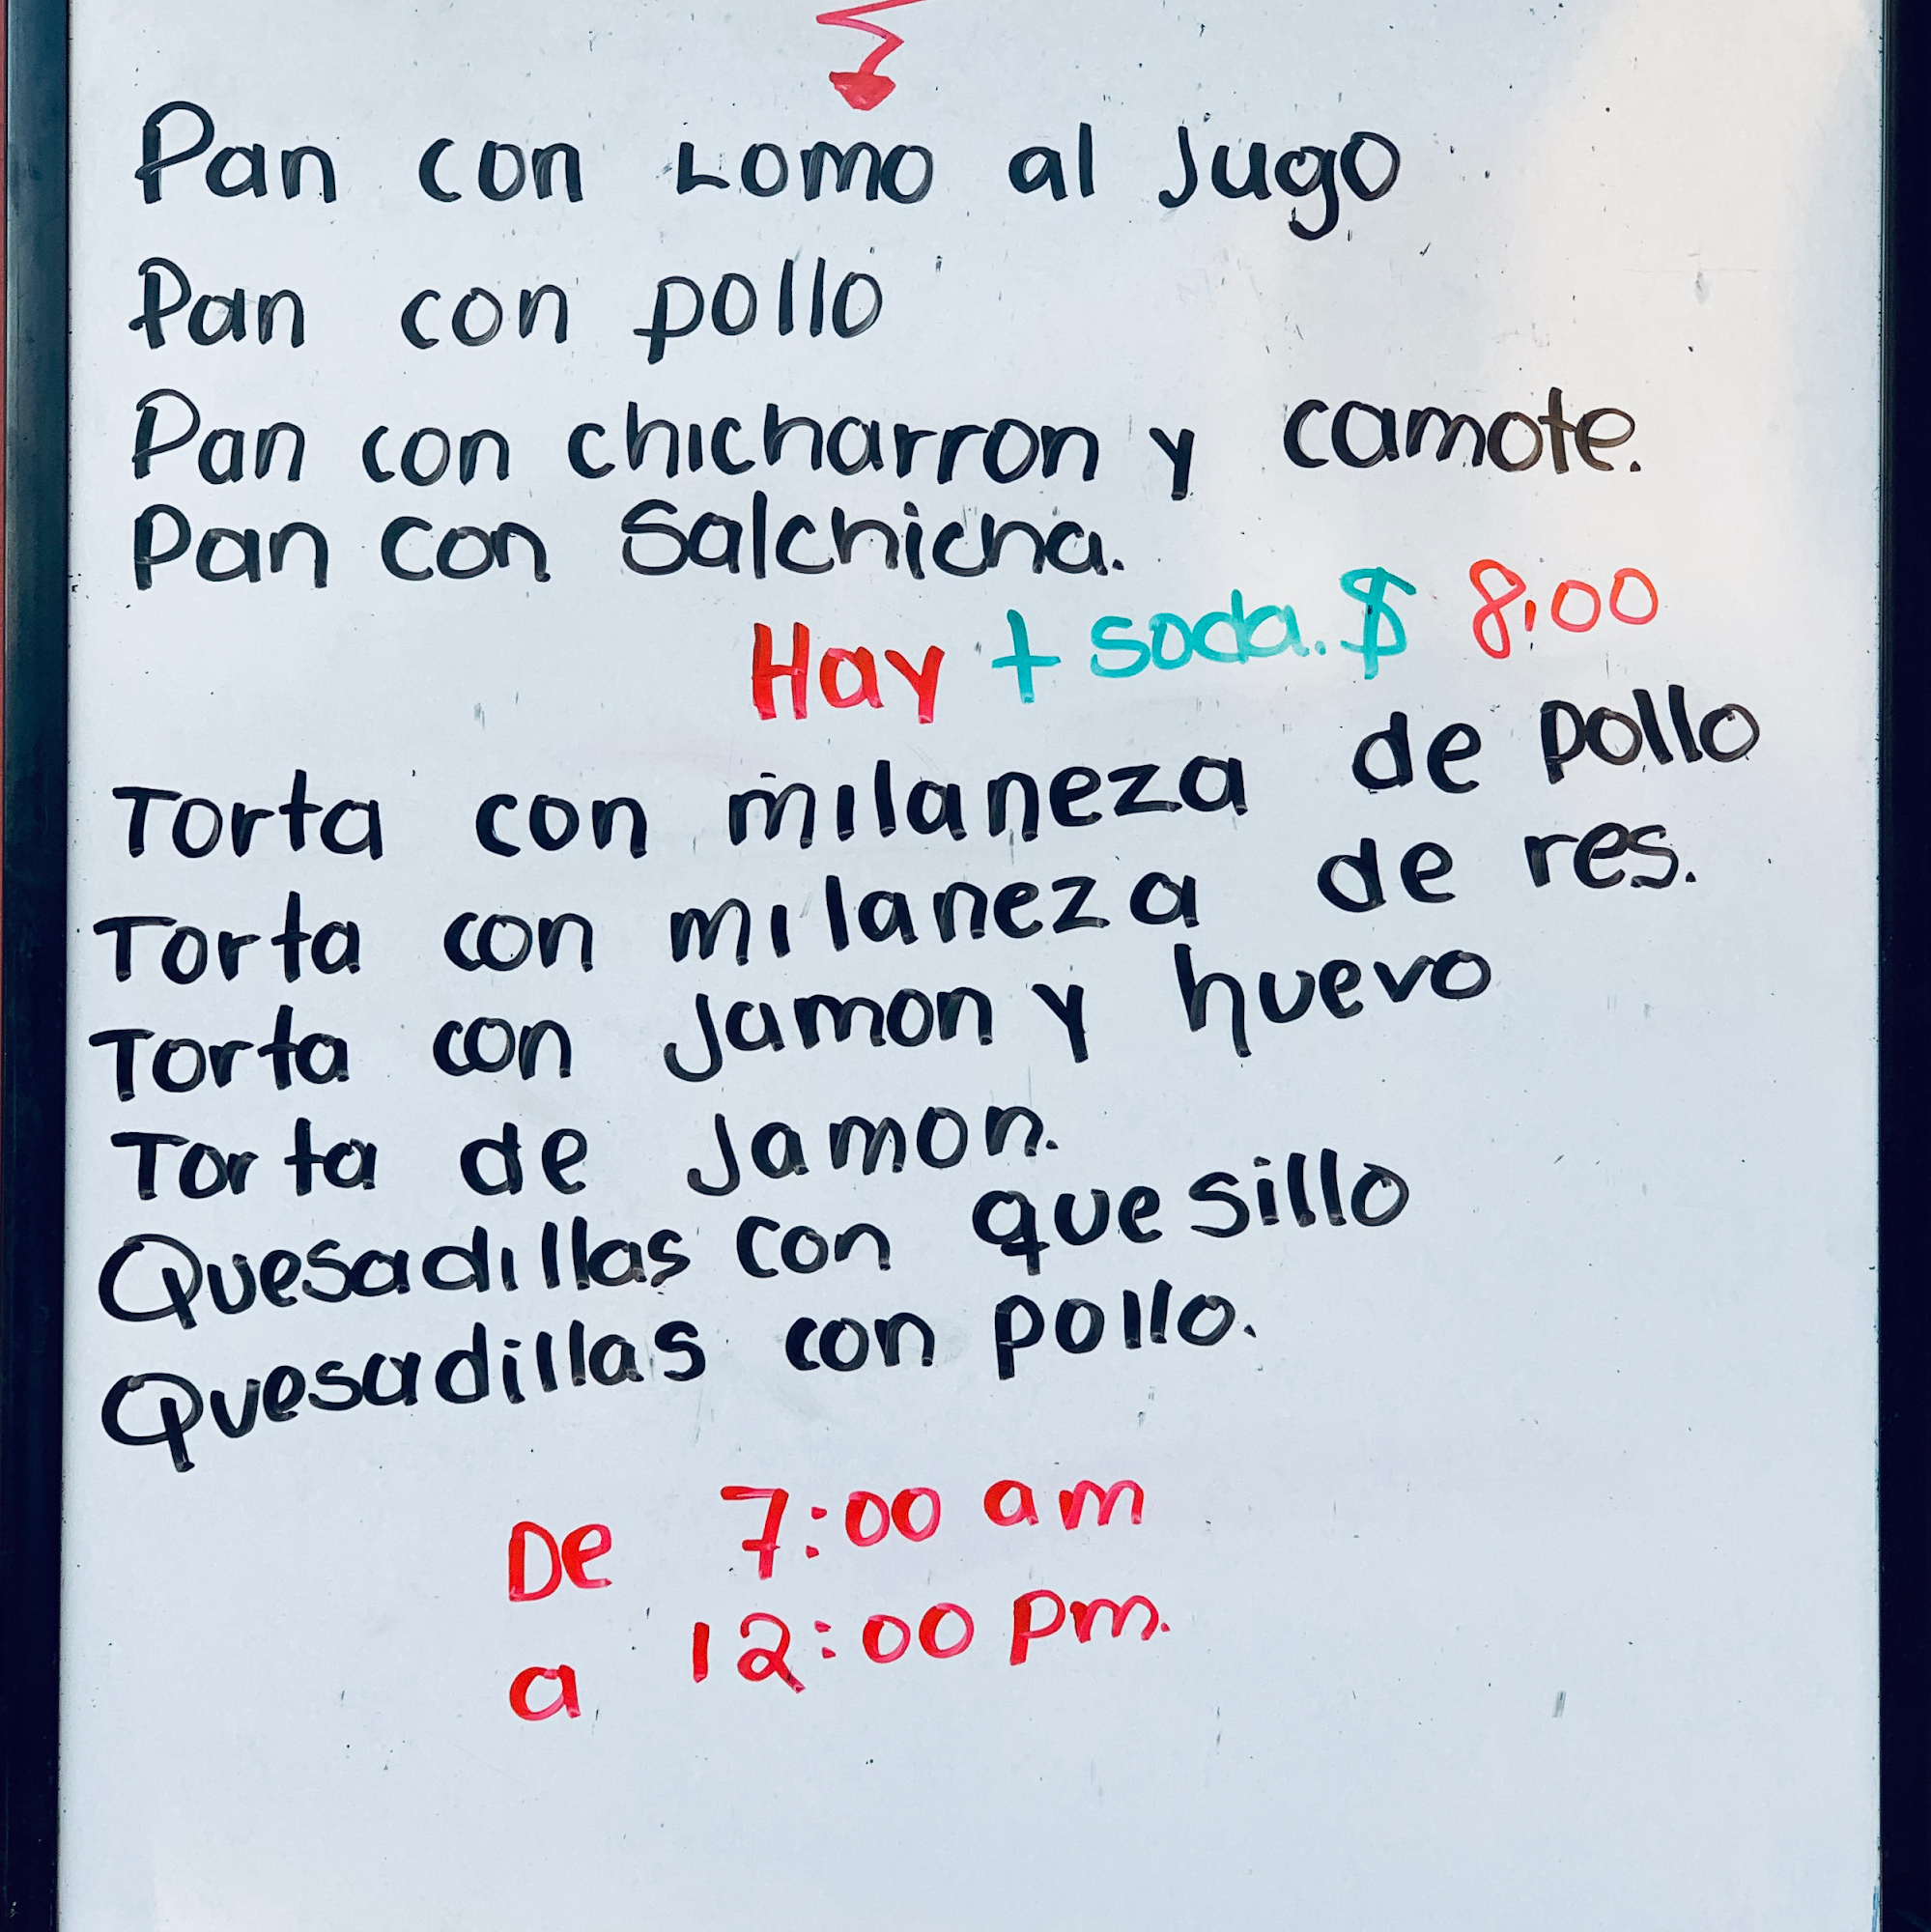 Pan con Lomo al Jugo
Pan con pollo
Pan con chicharron y camote.
Pan con Salchicha.
Hay + soda. $ 8.00
Torta con milaneza de pollo
Torta con milaneza de res.
Torta con Jamon y huevo
Torta de Jamon.
Quesadillas con quesillo
Quesadillas con pollo.
De 7:00 am
a 12:00 pm.